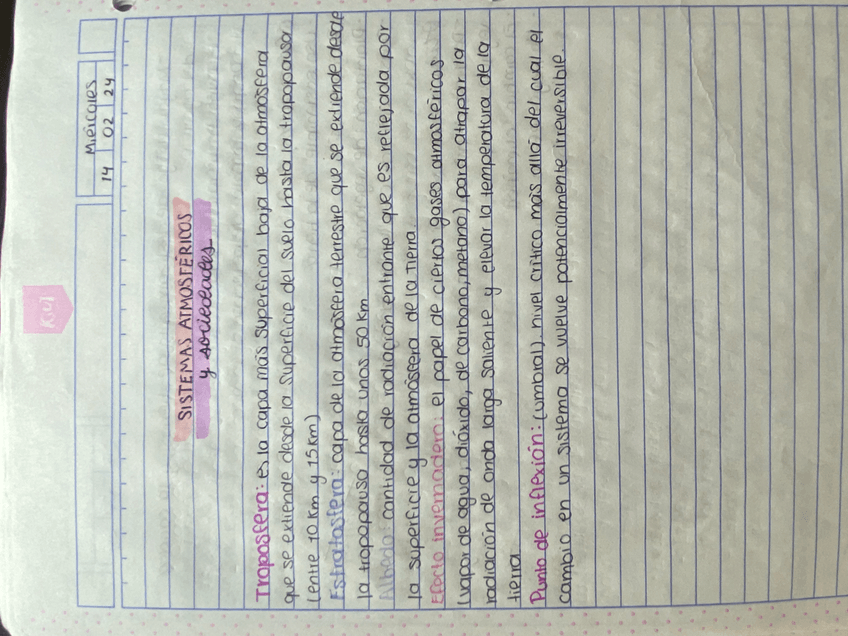 Miércoles
14 02 24
SISTEMAS ATMOSFÉRICOS
y sociedades
Troposfera: es la capa más superficial baja de la atmosfera
que se extiende desde la superficie del suelo hasta la tropopausa
(entre 10 Km y 15 Km)
Estratosfera: capa de la atmósfera terrestre que se extiende desde
la tropopausa hasta unos 50 Km
Albedo: cantidad de radiación entrante que es reflejada por
la superficie y la atmósfera de la Tierra
Efecto invernadero: el papel de ciertos gases atmosféricos
(vapor de agua, dióxido, de carbono, metano) para atrapar la
radiación de onda larga saliente y elevar la temperatura de la
tierra
Punto de inflexión: (umbral). nivel crítico más allá del cual el
cambio en un sistema se vuelve potencialmente irreversible.